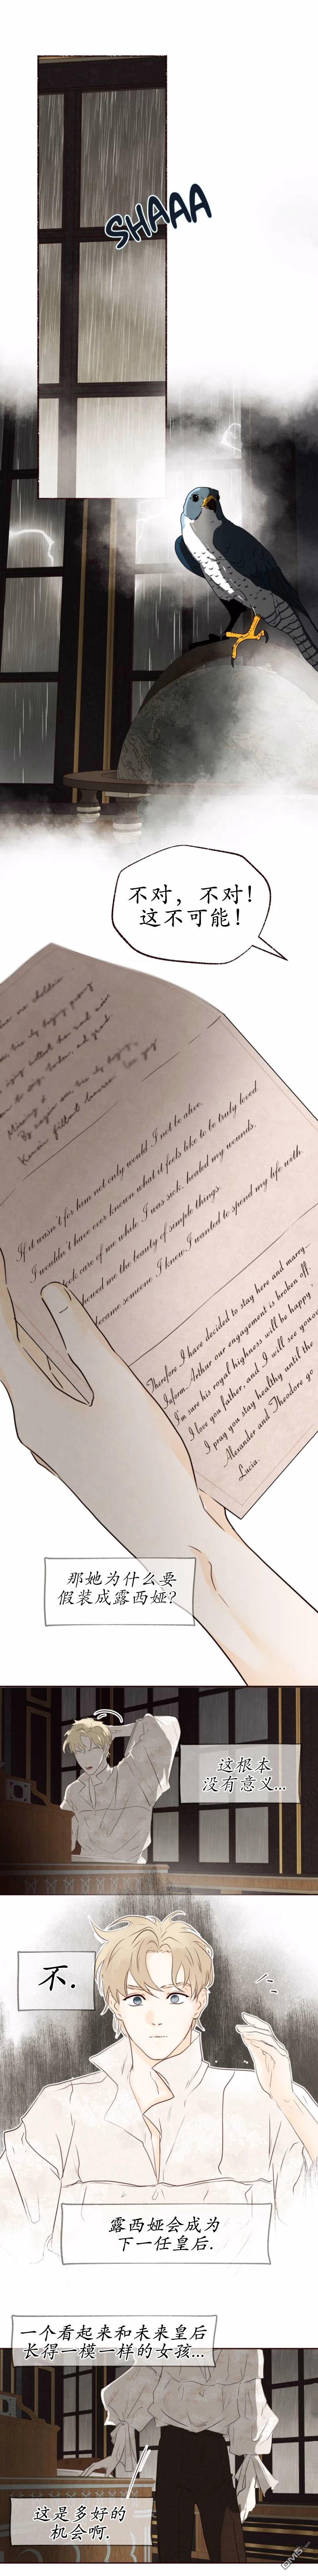 SHAAA
不对，不对！
这不可能！
If it wasn't for him not only would I not be alive,
I wouldn't have ever known what it feels like to be truly loved
took care of me while I was sick, healed my wounds,
howed me the beauty of simple things.
became someone I knew I wanted to spend my life with.
Therefore I have decided to stay here and marry
Inform Arthur our engagement is broken off.
I'm sure his royal highness will be happy
I love you father, and I will see you
I pray you stay healthy until the
Alexander and Theodore go
Lucia.
那她为什么要
假装成露西娅?
这根本
没有意义...
不.
露西娅会成为
下一任皇后.
一个看起来和未来皇后
长得一模一样的女孩...
这是多好的
机会啊.